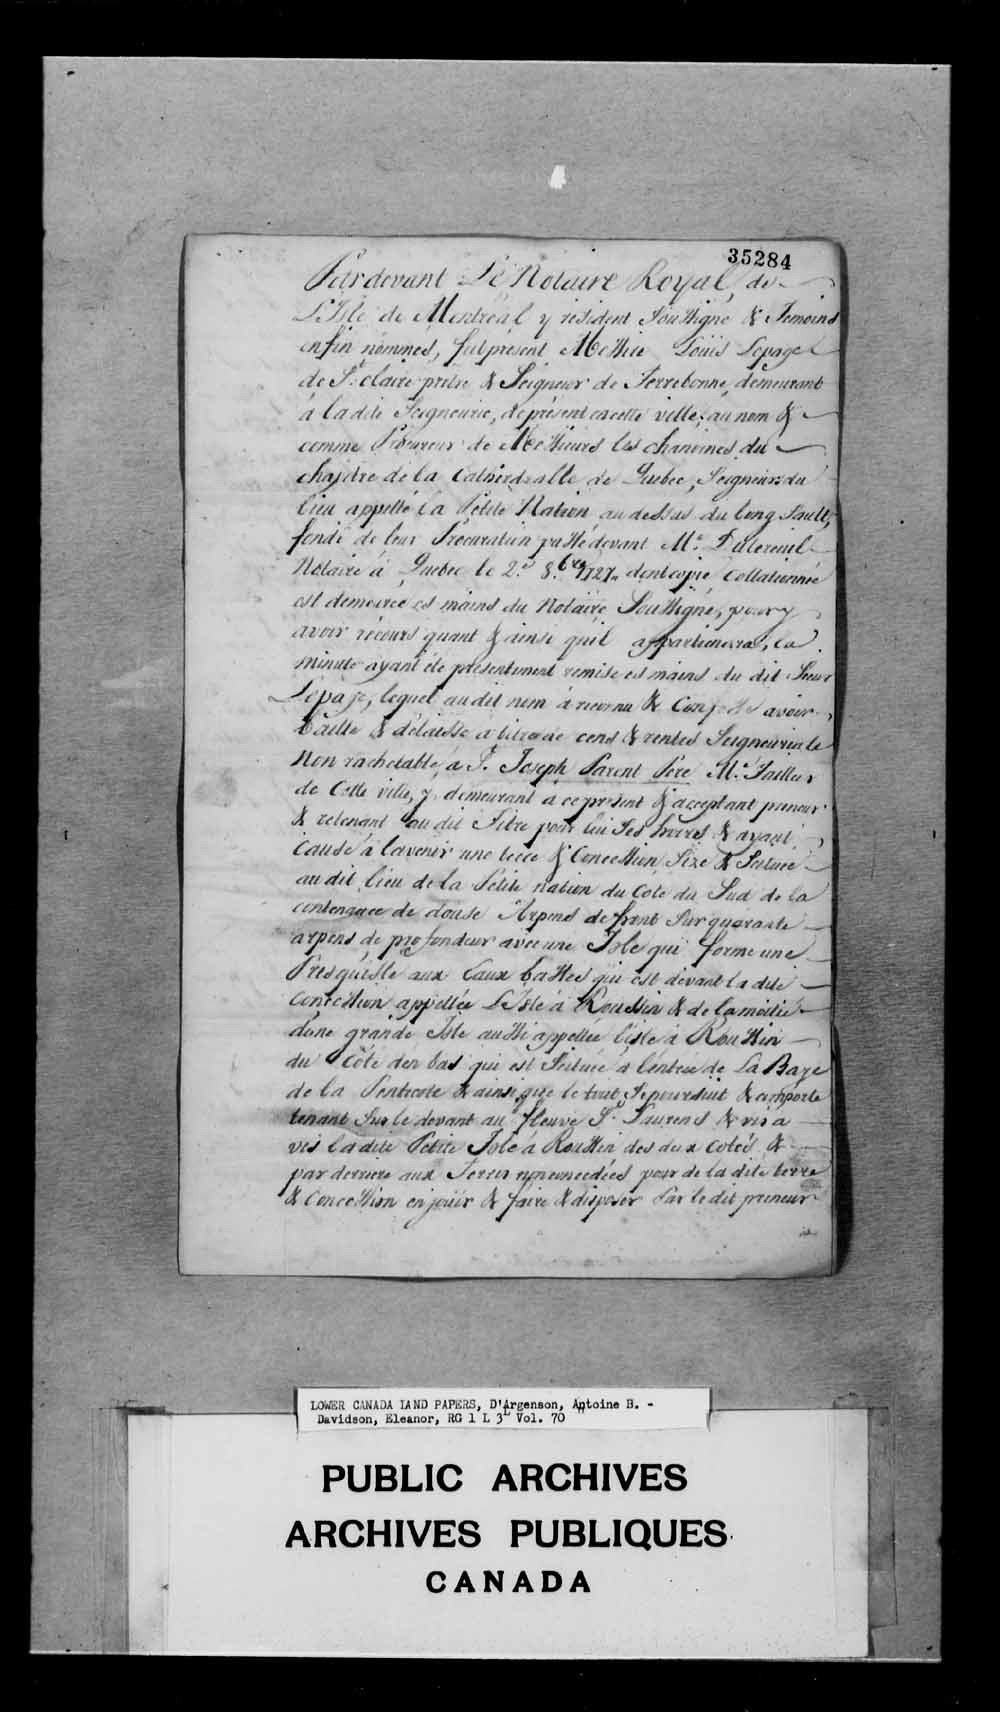 35284
Pardevant Le Notaire Royal, de
L'Isle de Montréal y résident Soussigné & Temoins
enfin nommés, fut present Messire Louis Lepage
de Ste claire prêtre & Seigneur de Terrebonne, demeurant
à la dite Seigneurie, de présent en cette ville, au nom &
comme Procureur de Messieurs les chanoines du
chapitre de la Cathédralle de Quebec, Seigneurs du
lieu appellé La Petite Nation au dessus du long Sault,
fondé de leur Procuration passé devant Me. Dubreuil
Notaire à Quebec le 2.e 8.bre 1727. dont copie Collationnée
est demeurée es mains du Notaire Soussigné, pour y
avoir récours quant & ainsi quil appartiendra, la
minute ayant été présentement remise es mains du dit Sieur
Lepage, lequel au dit nom à reconnu & Confessé avoir
baillé & délaissé à titre de cens & rentes Seigneuriale
Non rachetable à S. Joseph Parent Père Me. Tailleur
de Cette ville, y demeurant a ce present & acceptant preneur
& retenant au dit Titre pour lui Ses hoires & ayant
Cause à l'avenir une terre & Concession Size & Scituée
au dit lieu de la Petite nation du Coté du Sud de la
contenance de douse Arpens de front Sur quarante
arpens de profondeur avec une Isle qui forme une
Presqu'isle aux Eaux basses qui est devant la dite
Concession appellée L'Isle à Roussin & de la moitié
d'une grande Isle aussi appellée l'isle à Roussin
du Côté den bas qui est Scituée à l'entrée de La Baye
de la Pentecote & ainsi que le tout Se poursuit & comporte
tenant Sur le devant au fleuve St. Laurens & vis a
vis la dite Petite Isle à Roussin des deux Cotés &
par derriere aux Terres non concedées pour de la dite terre
& Concession en jouir & faire & disposer Par le dit preneur
LOWER CANADA LAND PAPERS, D'Argenson, Antoine B. -
Davidson, Eleanor, RG 1 L 3L Vol. 70
PUBLIC ARCHIVES
ARCHIVES PUBLIQUES
CANADA